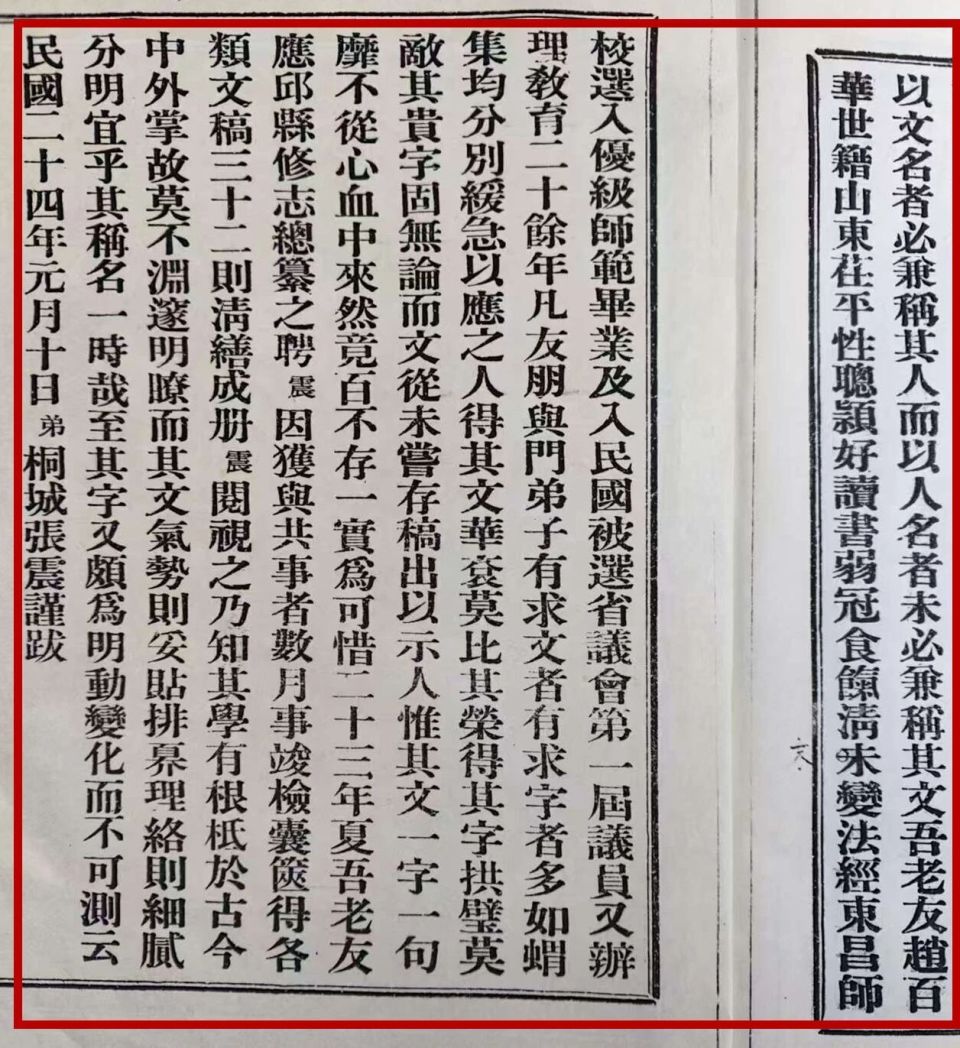 以文名者必兼稱其人而以人名者未必兼稱其文吾老友趙百
華世籍山東茌平性聰潁好讀書弱冠食餼淸末變法經東昌師
校選入優級師範畢業及入民國被選省議會第一屆議員又辦
理敎育二十餘年凡友朋與門弟子有求文者有求字者多如蝟
集均分別緩急以應之人得其文華袞莫比其榮得其字拱璧莫
敵其貴字固無論而文從未嘗存稿出以示人惟其文一字一句
靡不從心血中來然竟百不存一實爲可惜二十三年夏吾老友
應邱縣修志總纂之聘震因獲與共事者數月事竣檢囊篋得各
類文稿三十二則淸繕成册震閱視之乃知其學有根柢於古今
中外掌故莫不淵邃明瞭而其文氣勢則妥貼排奡理絡則細膩
分明宜乎其稱名一時哉至其字又頗爲明動變化而不可測云
民國二十四年元月十日弟桐城張震謹跋